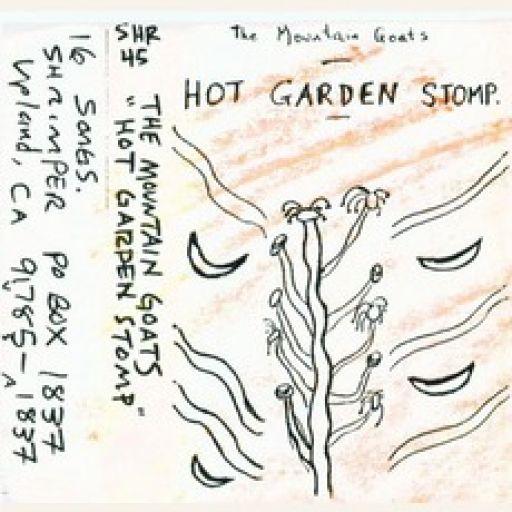 The Mountain Goats
HOT GARDEN STOMP.
SHR
45
THE MOUNTAIN GOATS
"HOT GARDEN STOMP"
16 SONGS.
SHRIMPER PO BOX 1837
Upland, CA 91785-1837